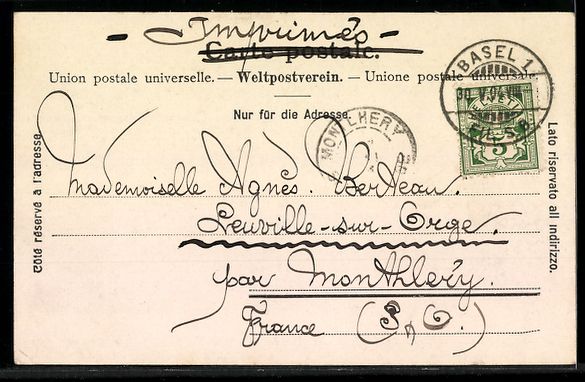 - Imprimés -
Carte postale.
Union postale universelle. — Weltpostverein. — Unione postale universale
Nur für die Adresse.
BASEL 1
MONTLHERY
HELVETIA
5
Côté réservé à l'adresse.
Lato riservato all indirizzo.
Mademoiselle Agnès. Berteau.
Leuville-sur-Orge.
par Monthléry.
France (S, O.)